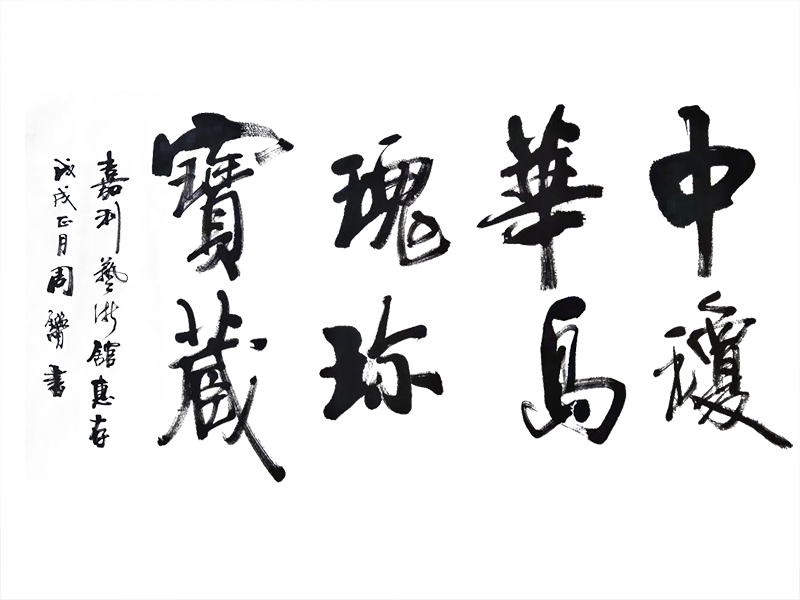 中華瑰寶
瓊島珍藏
嘉利藝術館惠存
戊戌正月周書